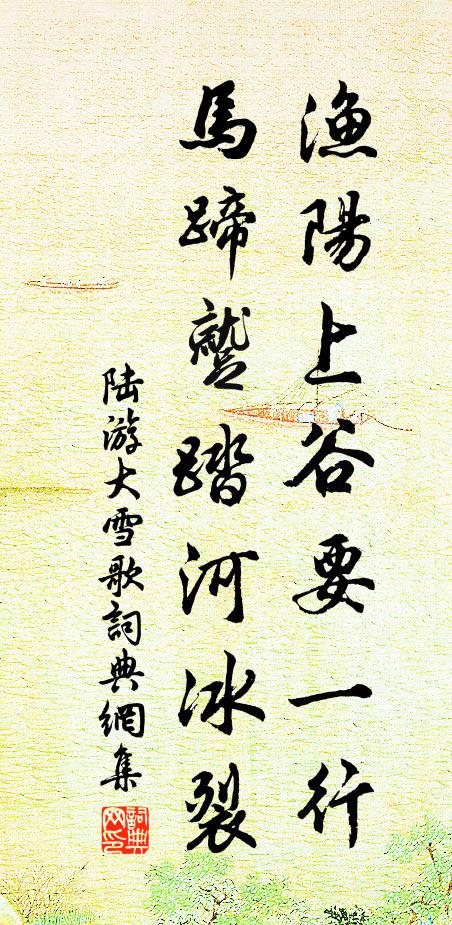 漁陽上谷要一行
馬蹄蹵踏河冰裂
陸游大雪歌詞典網集
詞典
网印